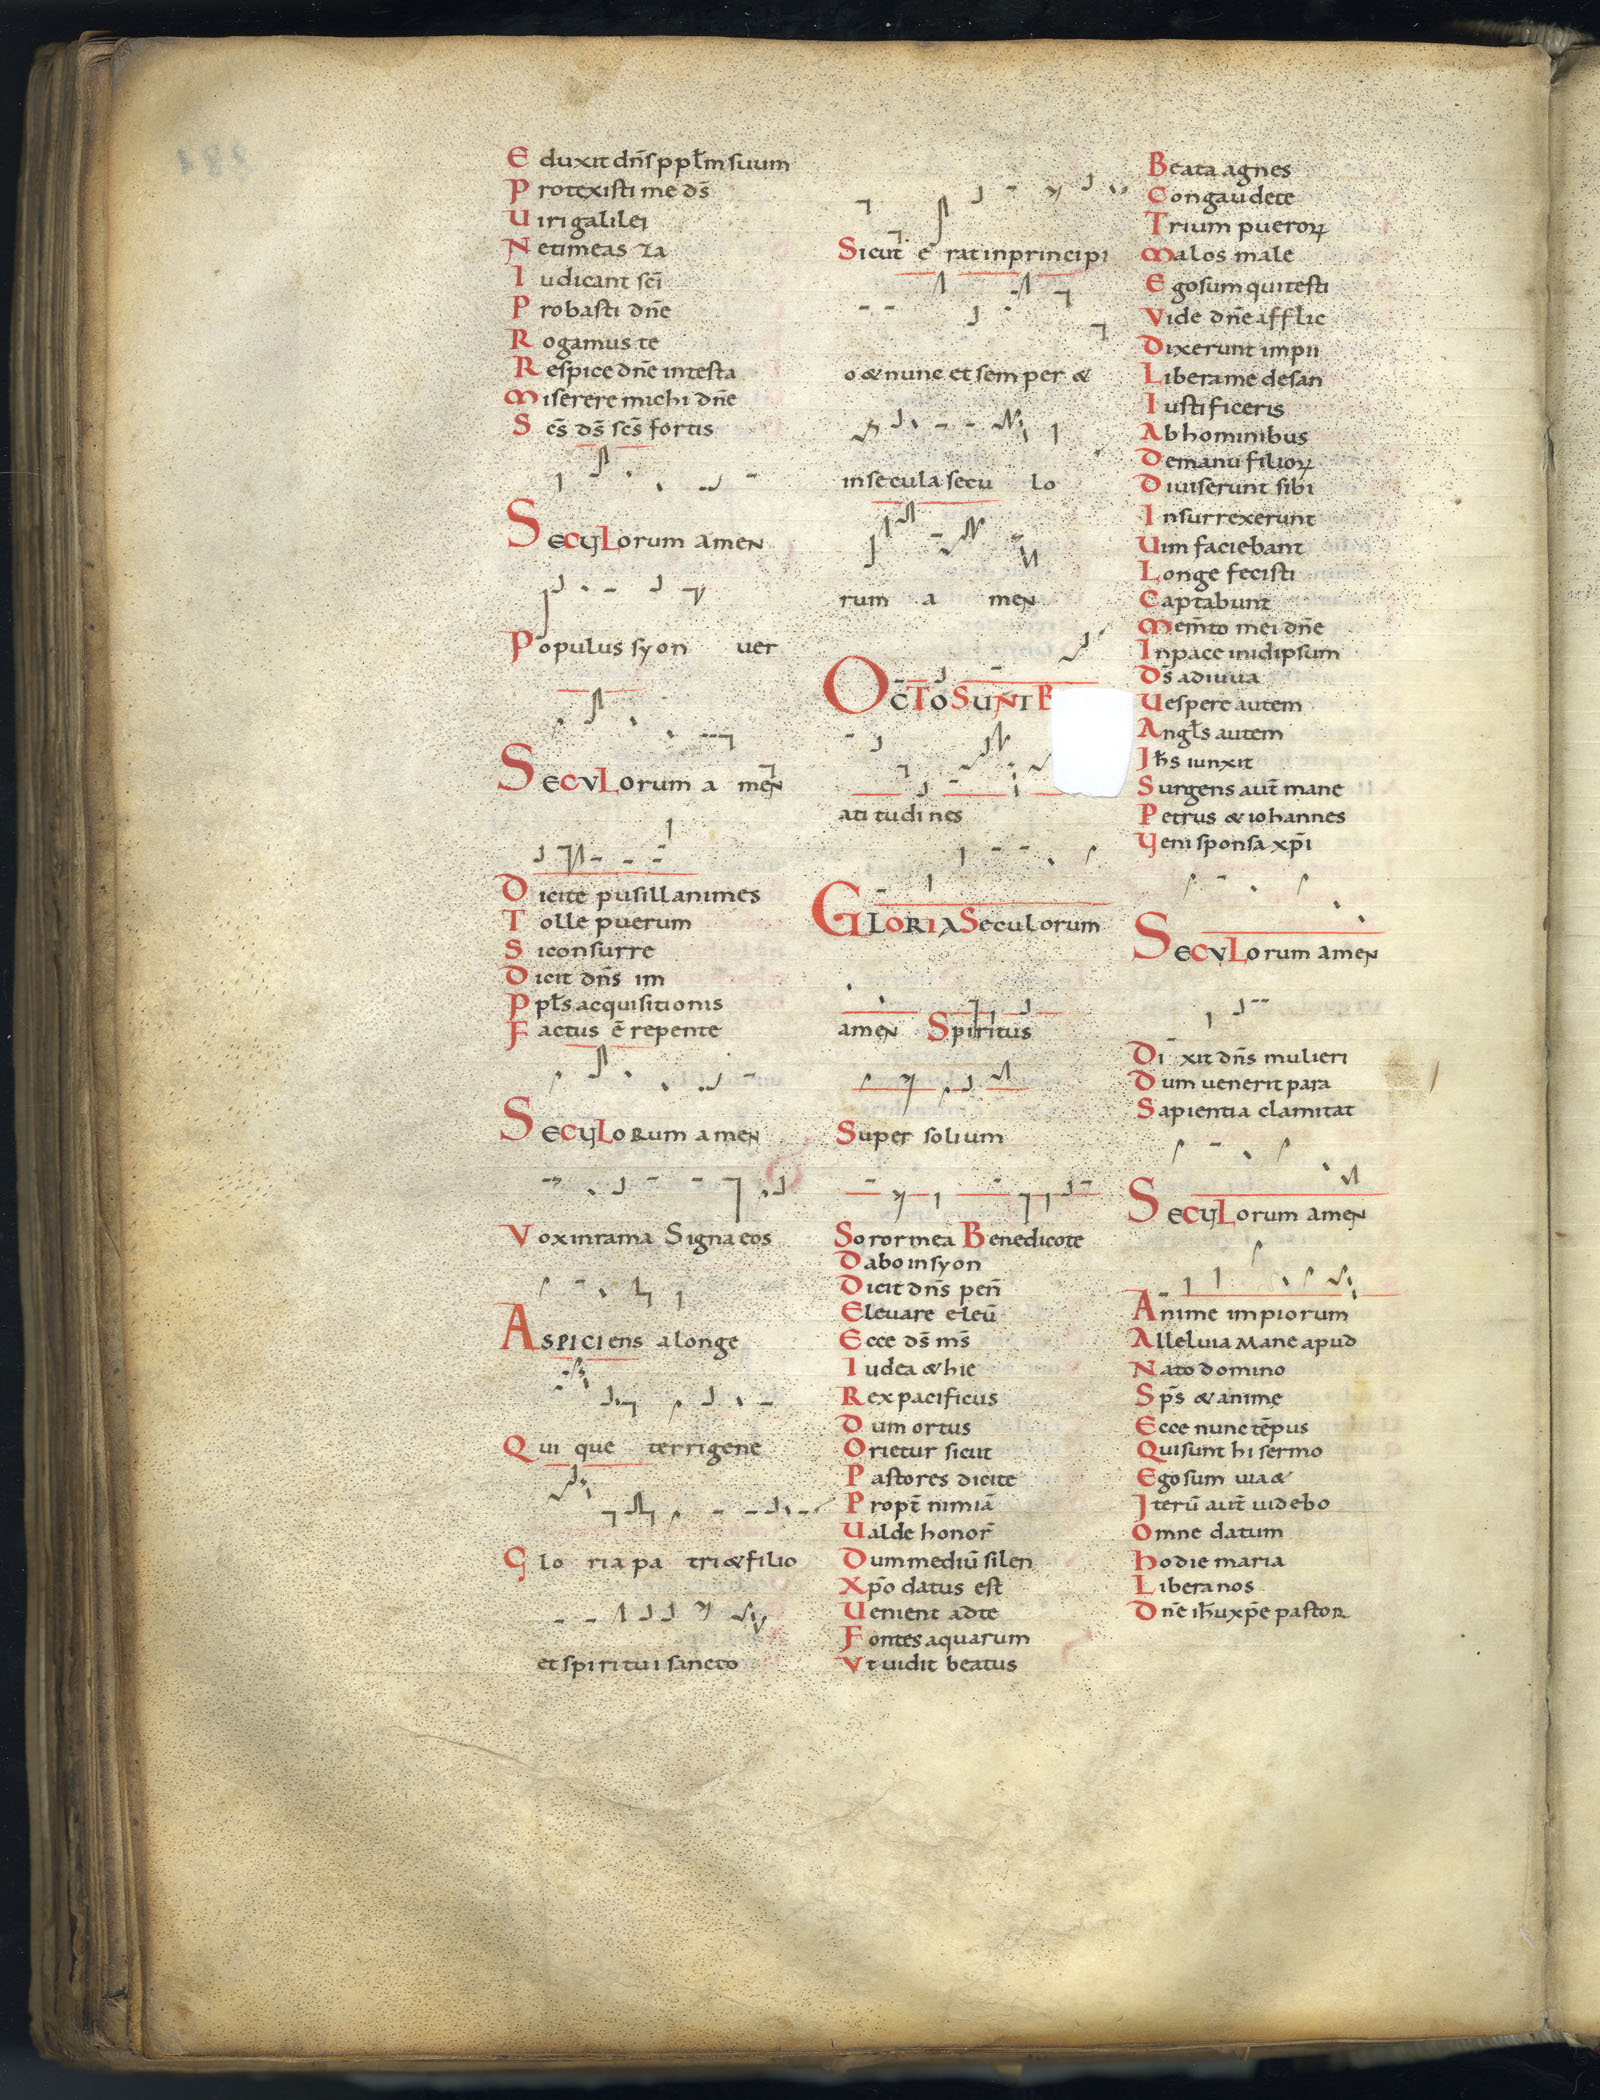 E duxit dn̄s ppl̄m suum
P rotexisti me ds̄
U iri galilei
N etimeas za
I udicant sc̄i
P robasti dn̄e
R ogamus te
R espice dn̄e intesta
M iserere michi dn̄e
S cs̄ ds̄ scs̄ fortis
SECULorum amen
Populus syon uer
SECVLorum a men
D icite pusillanimes
T olle puerum
S iconsurre
D icit dn̄s im
P pl̄s acquisitionis
F actus ē repente
SECULoRum amen
V oxinrama Signa eos
ASPICIens alonge
Q ui que terrigene
G lo ria pa tri & filio
et spiritui sancto
Sicut e rat in principi
o & nunc et semper &
in secula secu lo
rum a men
OCTO SUNT B
ati tudines
GLORIA Seculorum
amen Spiritus
Super solium
Soror mea Benedicote
D abo in syon
D icit dn̄s pen̄
Eleuare eleū
E cce ds̄ ms̄
I udea & hie
R ex pacificus
D um ortus
O rietur sicut
P astores dicite
P ropt̄ nimiā
Ualde honor̄
D um mediū silen
X p̄o datus est
U enient adte
F ontes aquarum
V t uidit beatus
Beata agnes
Congaudete
Trium pueroꝝ
Malos male
E go sum qui testi
Vide dn̄e afflic
Dixerunt impii
Libera me de san
I ustificeris
Ab hominibus
Demanu filioꝝ
Diuiserunt sibi
Insurrexerunt
Uim faciebant
Longe fecisti
Captabunt
Mem̄to mei dn̄e
Inpace inidipsum
Ds̄ adiuua
Uespere autem
Angl̄s autem
Jh̄s iunxit
Surgens aut̄ mane
Petrus & iohannes
Ueni sponsa xp̄i
SECVLorum amen
Di xit dn̄s mulieri
D um uenerit para
Sapientia clamitat
SECULorum amen
Anime impiorum
Alleluia Mane apud
Nato domino
Sp̄s & anime
Ecce nunc tēpus
Qui sunt hi sermo
Ego sum uia &
Jterū aut̄ uidebo
Omne datum
hodie maria
Libera nos
Dn̄e ih̄u xp̄e pastor